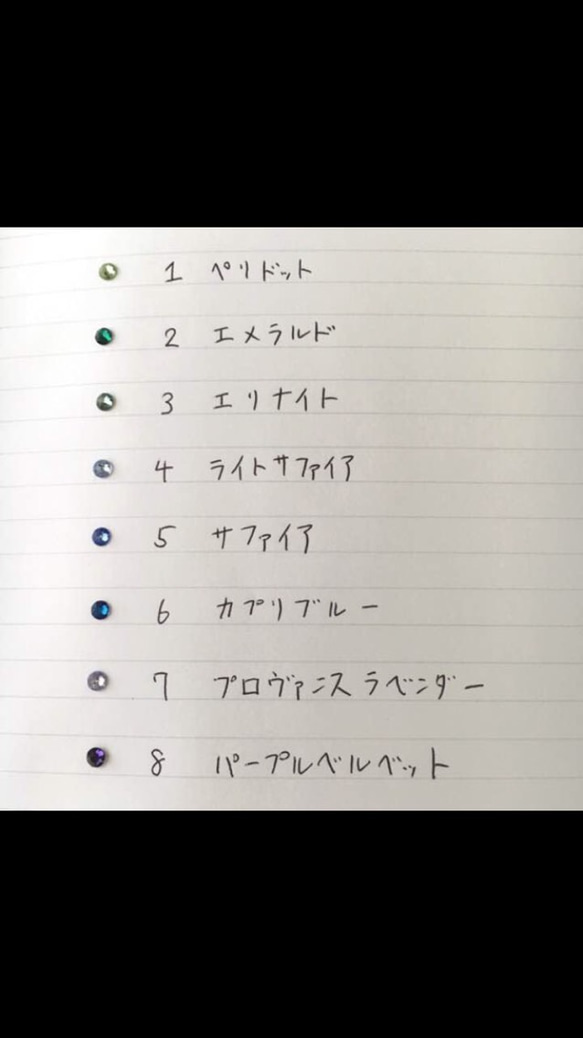 1 ペリドット
2 エメラルド
3 エリナイト
4 ライトサファイア
5 サファイア
6 カプリブルー
7 プロヴァンスラベンダー
8 パープルベルベット